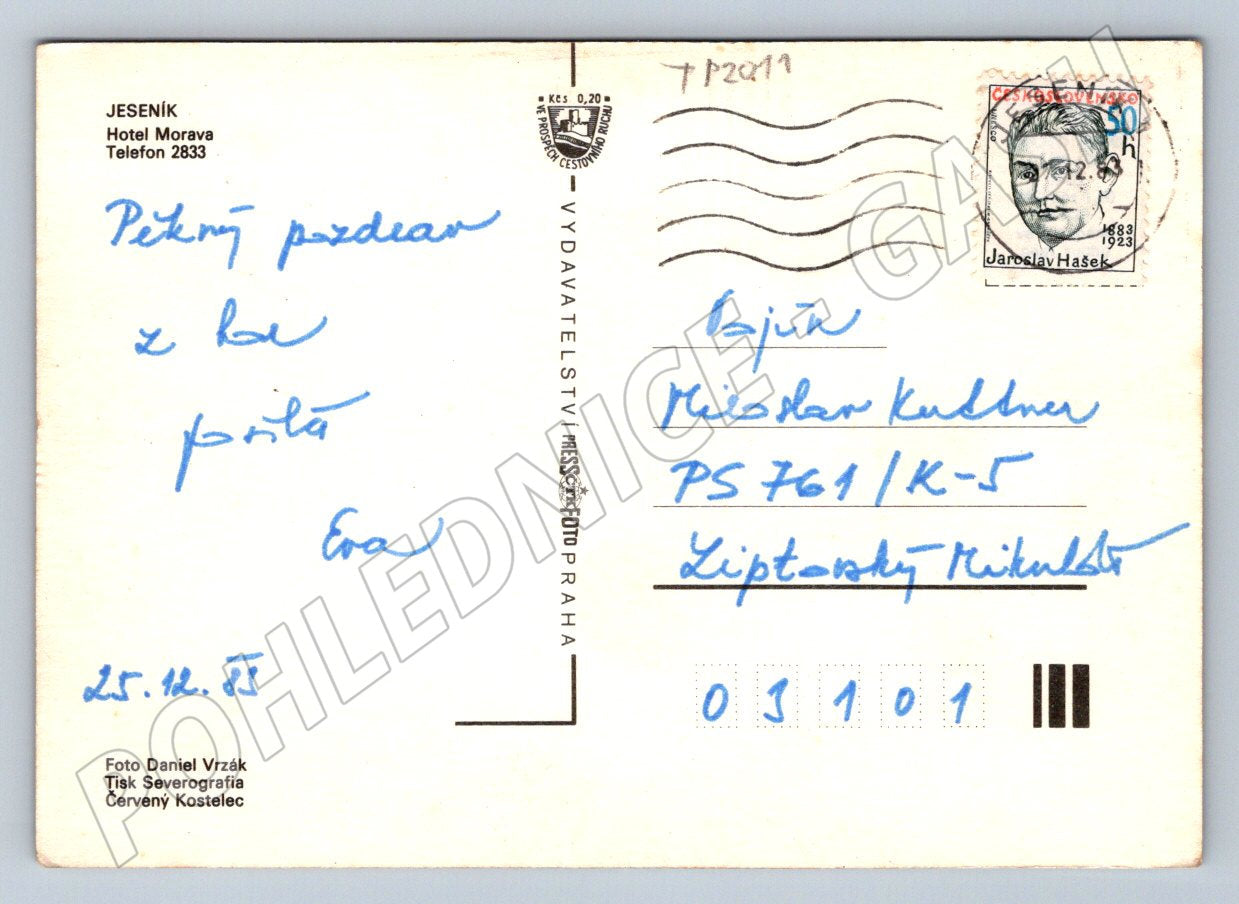 JESENÍK
Hotel Morava
Telefon 2833
Pěkný pozdrav
z hor
posílá
Eva
25.12.83
Foto Daniel Vrzák
Tisk Severografia
Červený Kostelec
Kčs 0,20
VE PROSPĚCH CESTOVNÍHO RUCHU
VYDAVATELSTVÍ PRESSFOTO PRAHA
TP2011
ČESKOSLOVENSKO
50
h
12.83
1883
1923
Jaroslav Hašek
Vojín
Miloslav Kuttner
PS 761/K-5
Liptovský Mikuláš
03101
POHLEDNICE - GASH